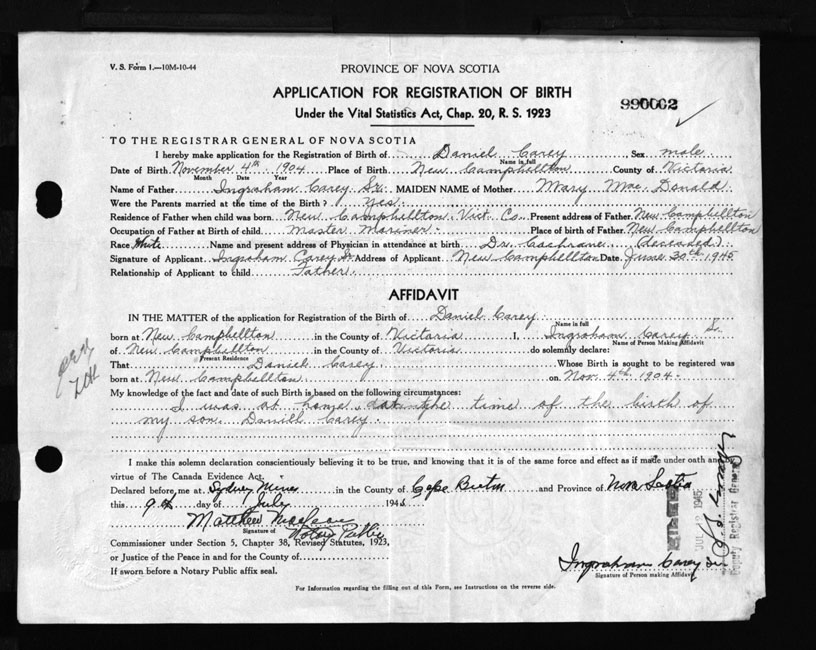 V. S. Form 1.—10M-10-44
PROVINCE OF NOVA SCOTIA
APPLICATION FOR REGISTRATION OF BIRTH
990002
Under the Vital Statistics Act, Chap. 20, R. S. 1923
TO THE REGISTRAR GENERAL OF NOVA SCOTIA
I hereby make application for the Registration of Birth of Daniel Carey Sex male
Name in full
Date of Birth November 4th 1904 Place of Birth New Campbellton County of Victoria
Month Date Year
Name of Father Ingraham Carey Sr. MAIDEN NAME of Mother Mary Mac Donald
Were the Parents married at the time of the Birth ? Yes
Residence of Father when child was born New Campbellton Vict. Co. Present address of Father New Campbellton
Occupation of Father at Birth of child Master Mariner Place of birth of Father New Campbellton
Race White Name and present address of Physician in attendance at birth Dr. Cochrane (deceased)
Signature of Applicant Ingraham Carey Sr Address of Applicant New Campbellton Date June 30th 1945
Relationship of Applicant to child Father
AFFIDAVIT
IN THE MATTER of the application for Registration of the Birth of Daniel Carey
Name in full
born at New Campbellton in the County of Victoria I, Ingraham Carey Sr
Name of Person Making Affidavit
of New Campbellton in the County of Victoria do solemnly declare:
Present Residence
That Daniel Carey Whose Birth is sought to be registered was
born at New Campbellton on Nov. 4th 1904
My knowledge of the fact and date of such Birth is based on the following circumstances:
I was at home at the time of the birth of
my son Daniell Carey
I make this solemn declaration conscientiously believing it to be true, and knowing that it is of the same force and effect as if made under oath and by
virtue of The Canada Evidence Act.
Declared before me at Sydney Mines in the County of Cape Breton and Province of Nova Scotia
this 9th day of July 1945
Matthew MacLean
Signature of Notary Public
Commissioner under Section 5, Chapter 38, Revised Statutes, 1923,
or Justice of the Peace in and for the County of
If sworn before a Notary Public affix seal.
Ingraham Carey Sr
Signature of Person making Affidavit
JUL 12 1945
Deputy Registrar General
For Information regarding the filling out of this Form, see Instructions on the reverse side.